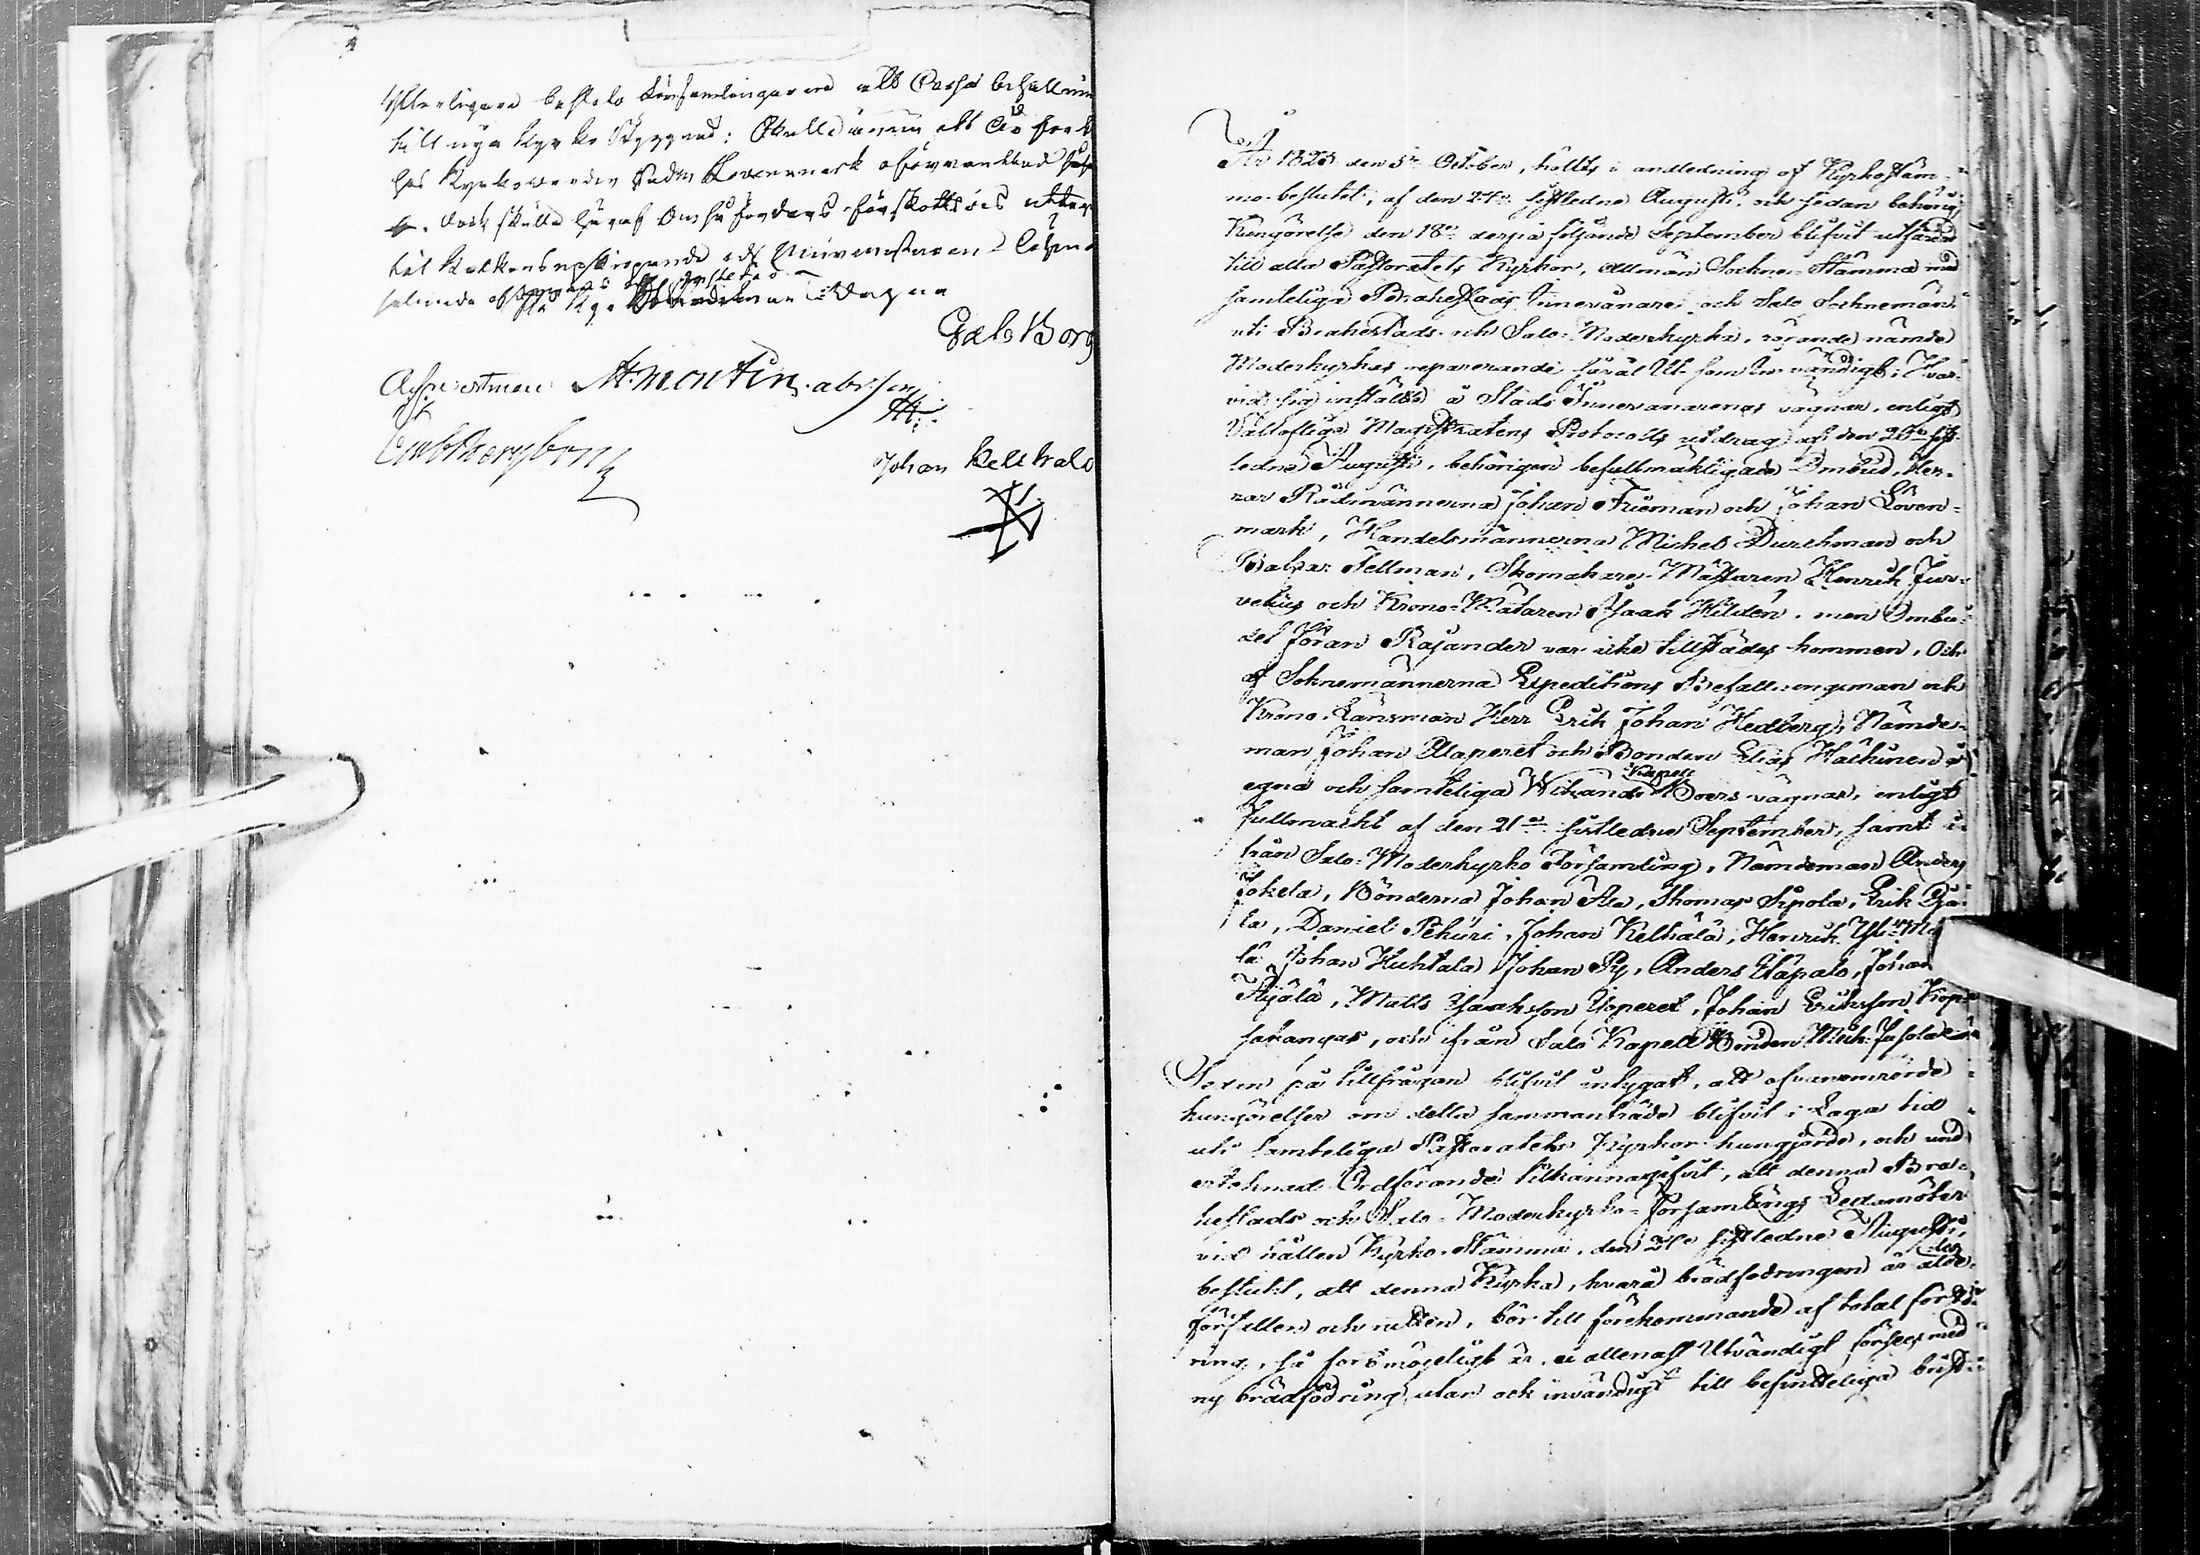 Ytterligare beslöto församlingarne att Cassa behållni
till nya Kyrko Byggnad: Skulle
hos Kyrkowärden Rådm Lövenmark oförvandlad
dock skulle häraf Omsu fordras förskottsvis
till kalkens upköpande och
Gab Borg
A. Montin
Johan Kelhälä
År 1825 den 5te October, hölts i anledning af Kyrkostäm-
mo-beslutet, af den 24de sistledne Augusti, och sedan behörig
Kungörelse den 18de derpå följande September blifvit utfärdad
till alla Pastoratets Kyrkor, Allmän Sockne-Stämma med
samteliga Brahestads Innevånare och Salo Socknemän
uti Brahestads och Salo-Moderkyrka, rörande nämde
Moderkyrkas reparerande såväl Ut- som Invändigt; Hvar-
vid sig inställde å Stads Innevånarenas vägnar, enligt
Välloflige Magistratens Protocolls utdrag af den 26te sist-
ledne Augusti, behörigen befullmäktigade Ombud, Her-
rar Rådmännerna Johan Frieman och Johan Löven-
mark, Handelsmännerna Michel Durchman och
Baltzar Fellman, Skomakare-Mästaren Henrik Jur-
velius och Krono-Mätaren Isaak Hildén, men Ombu-
det Jöran Rajander var icke tillstädes kommen, Och
af Soknemännerna Expeditions Befallningsman och
Krono-Länsman Herr Erik Johan Hedberg, Nämde-
man Johan Ylaperet och Bonden Elias Halkinen å
egna och samteliga Wihands Kapell Boers vägnar, enligt
fullmackt af den 21de sistledne September, samt i-
från Salo-Moderkyrko Församling, Nämdeman Anders
Jokela, Bönderna Johan Ala, Thomas Sipola, Erik
la, Daniel Pekuri, Johan Kelhälä, Henrik Yli-
lä Johan Huhtala, Johan Py, Anders Utäpalo, Johan
Äijälä, Matts Isaaksson Yperet, Johan Eriksson Kop-
sakangas, och ifrån Salo Kapell Bonden Mich: Jusola
Sedan på tillfrågan blifvit intygat, att ofvanomrörde
kungörelser om detta sammanträde blifvit i Laga tid
uti samteliga Pastoratets Kyrkor kungjorde, och und
ertecknad Ordförande tillkännagifvit, att denna Bra-
hestads och Salo-Moderkyrko-Församlings Ledamöter
vid hållen Kyrko-Stämma, den 24de sistledne Augusti,
beslutit, att denna Kyrka, hvars brädfodringen är alde-
les förfallen och rutten, bör till förekommande af total förstö-
ring, så fort möjeligt är, ei allenast Utvändigt förses med
ny brädfodring utan ock invändigt till befinteliga brist-